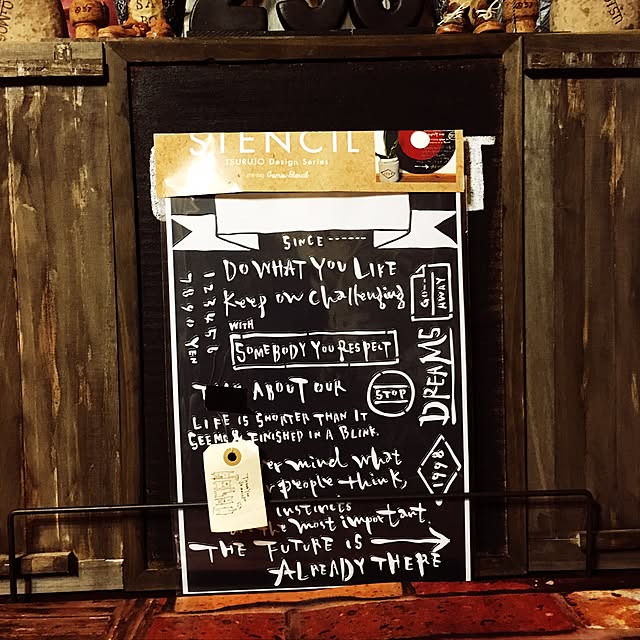 STENCIL
TSURUJO Design Series
SINCE ------
DO WHAT YOU LIFE
Keep on challenging
WITH
SOMEBODY YOU RESPECT
ABOUT OUR
LIFE IS SHORTER THAN IT
SEEMS & FINISHED IN A BLINK.
er mind what
people think,
instincts
most important.
THE FUTURE IS
ALREADY THERE
1 2 3 4 5 6
7 8 9 0 YEN
HWAY
DREAMS
STOP
1998
T